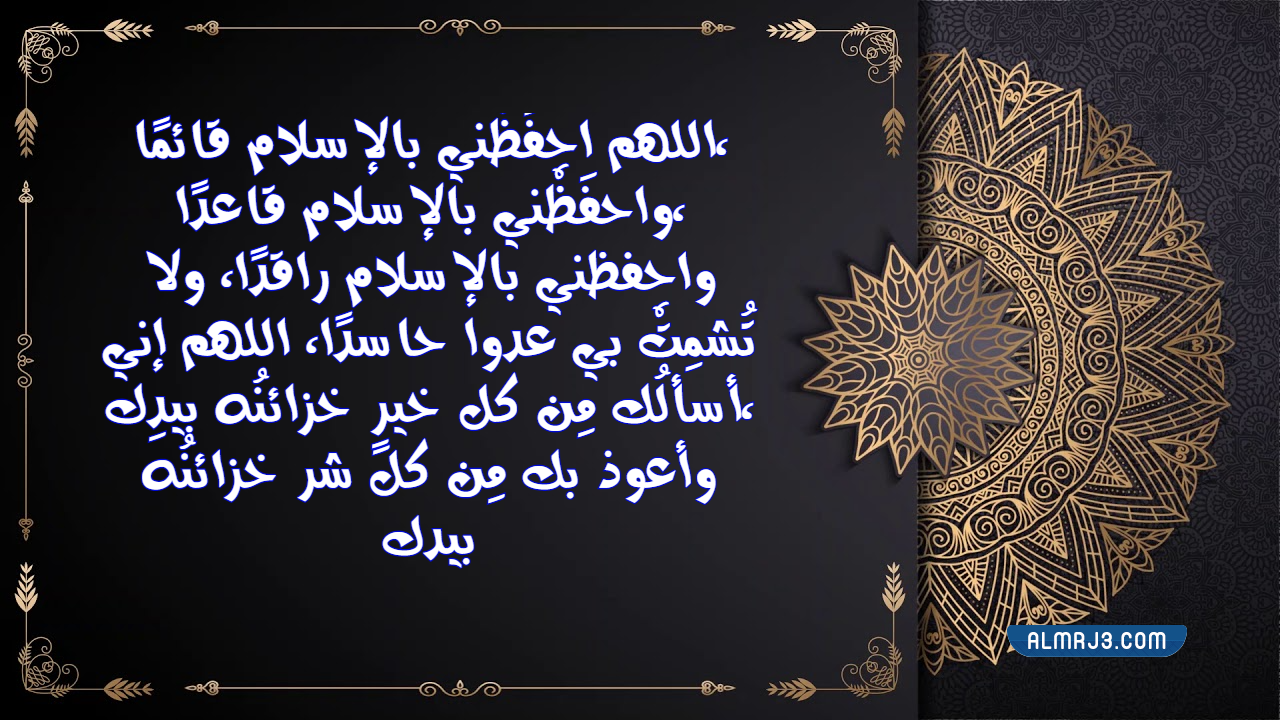 اللهم احفَظني بالإسلام قائمًا،
واحفَظْني بالإسلام قاعدًا،
واحفظني بالإسلام راقدًا، ولا
تُشمِتْ بي عدوا حاسدًا، اللهم إني
أسألُك مِن كل خيرٍ خزائنُه بيدِك،
وأعوذ بك مِن كلِّ شر خزائنُه
بيدك
ALMRJ3.COM